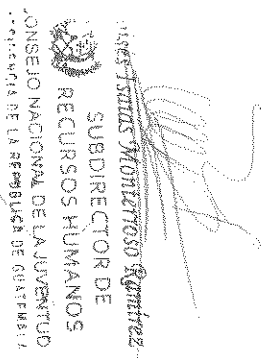 Isaias Monterroso Ramírez
SUBDIRECTOR DE
RECURSOS HUMANOS
CONSEJO NACIONAL DE LA JUVENTUD
DE LA REPÚBLICA DE GUATEMALA